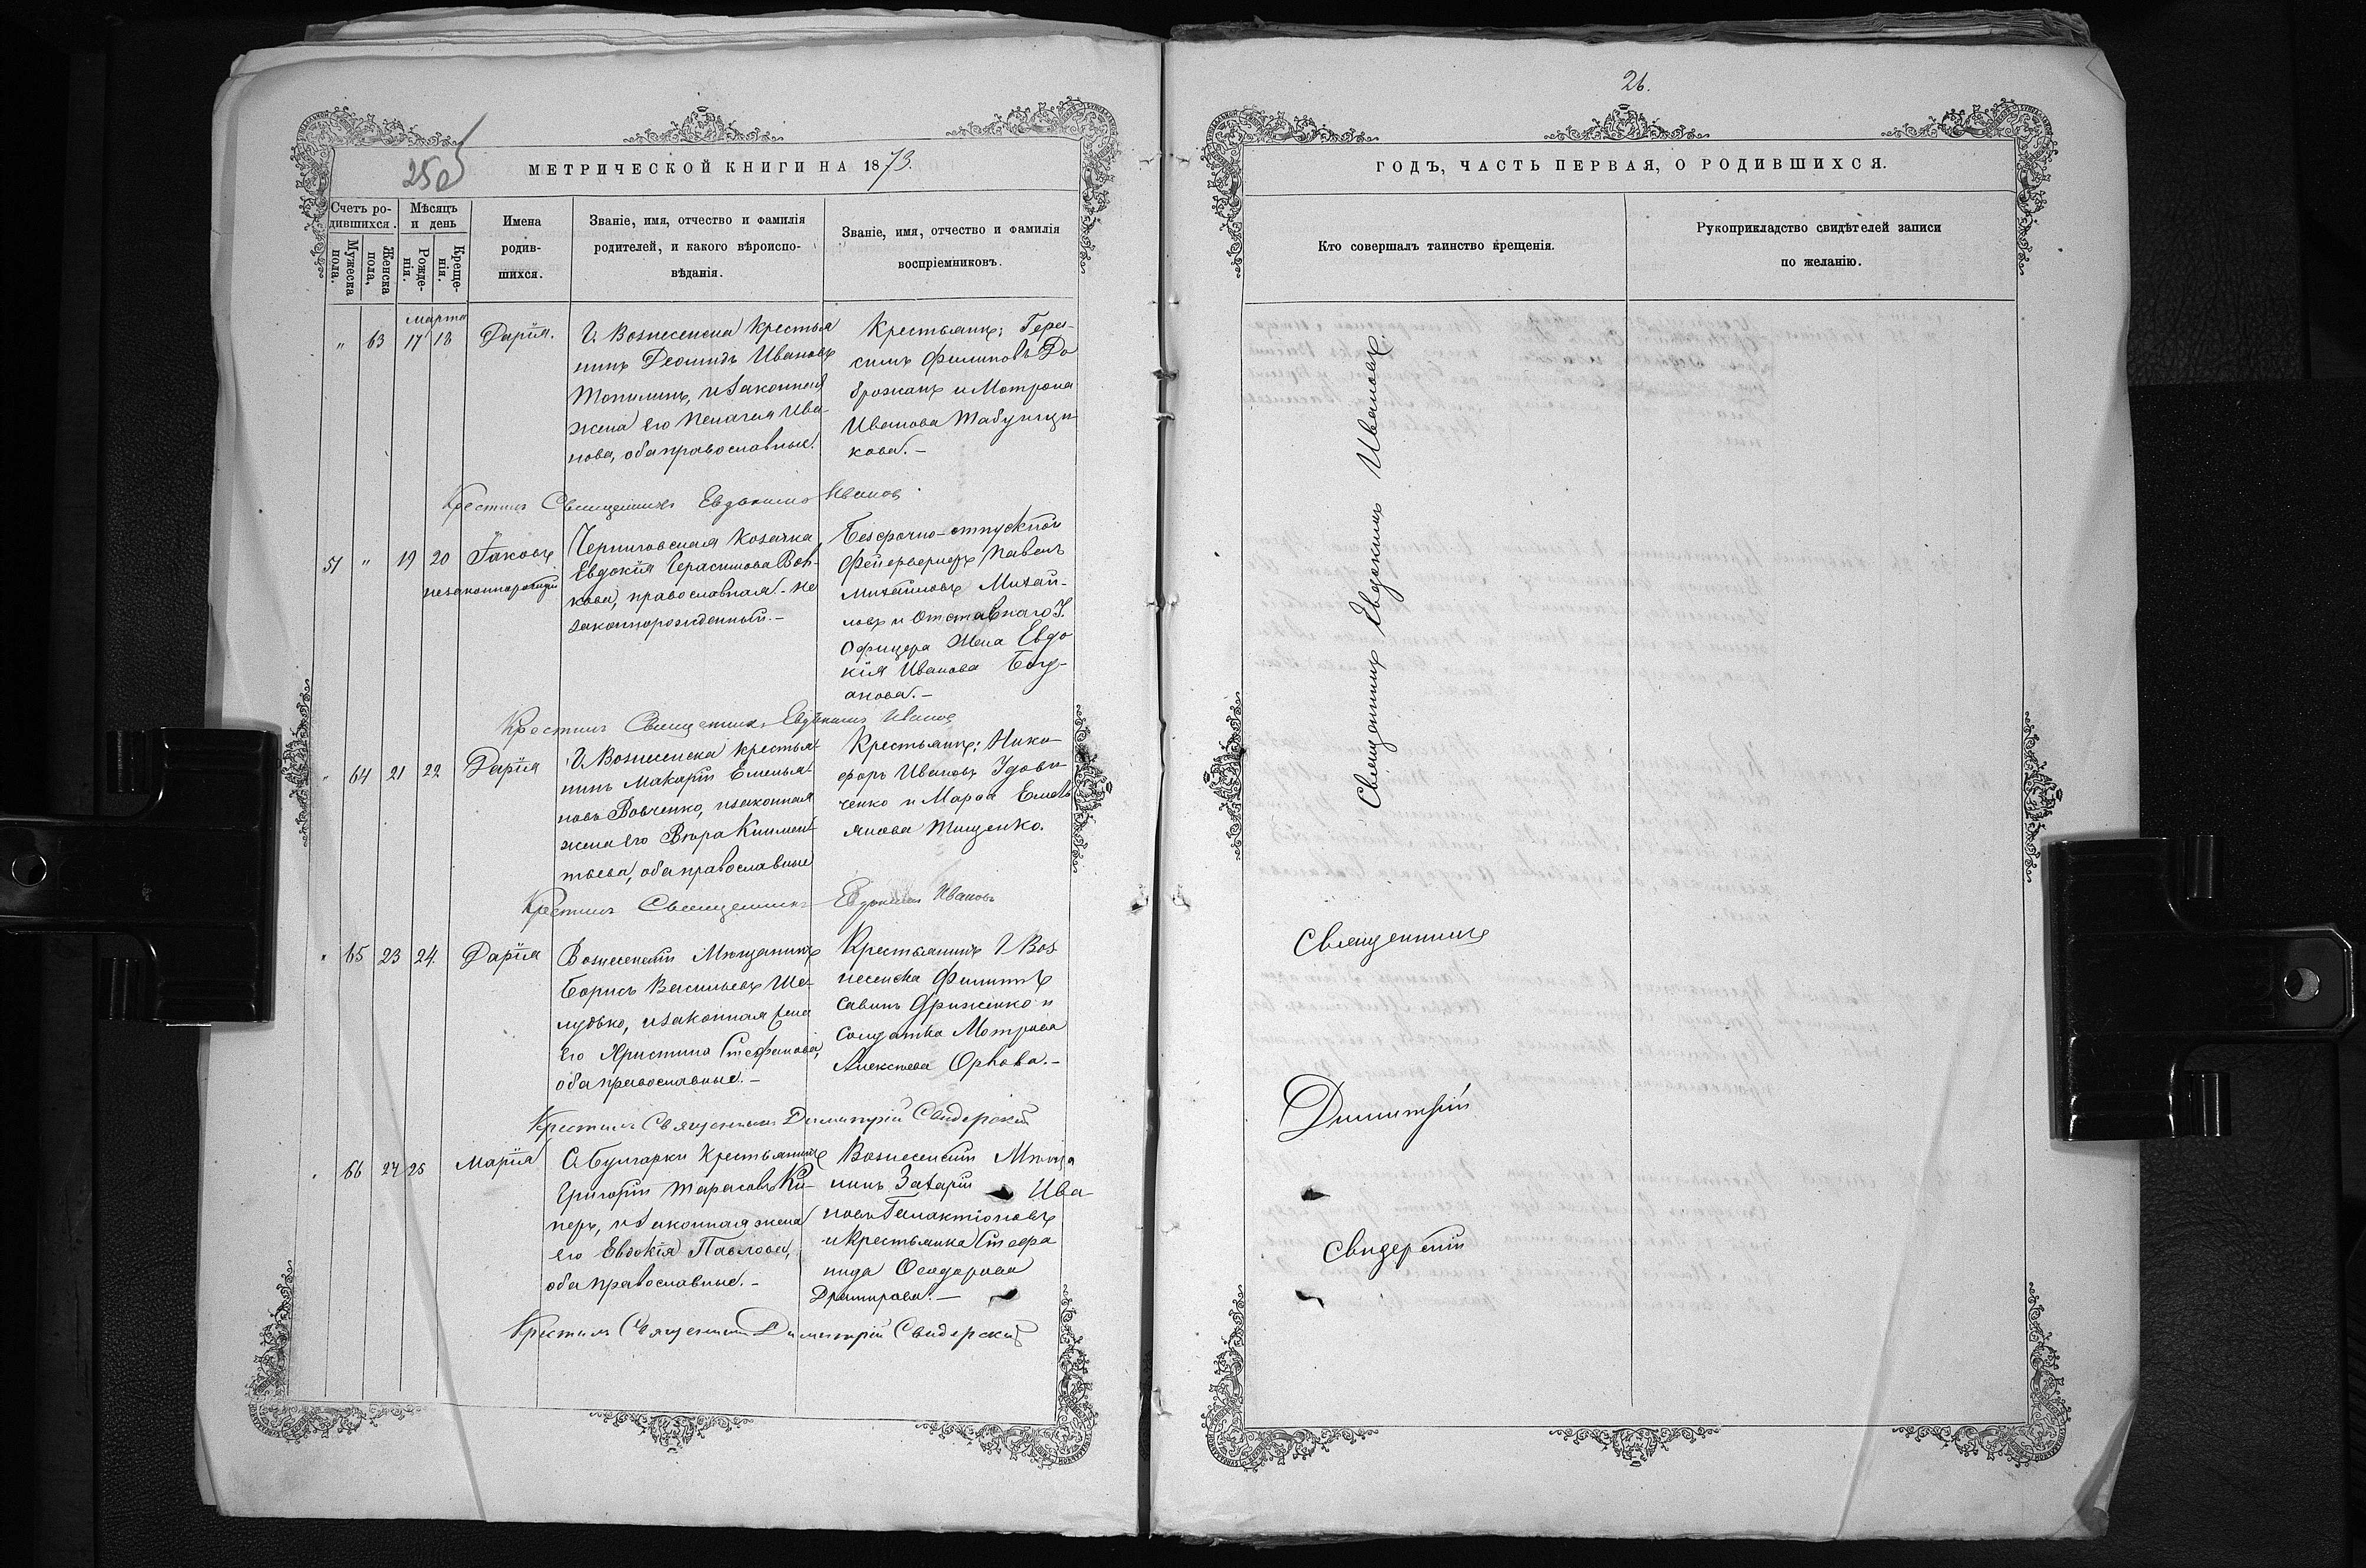 25
МЕТРИЧЕСКОЙ КНИГИ НА 1873.
Счетъ ро-
дившихся.
Мужеска
пола.
Женска
пола.
Мѣсяцъ
и день
Рожде-
нія.
Креще-
нія.
Имена
родив-
шихся.
Званіе, имя, отчество и фамилія
родителей, и какого вѣроиспо-
вѣданія.
Званіе, имя, отчество и фамилія
воспріемниковъ.
Марта
" 63 17 18 Дарія.
Г. Вознесенска Крестья
нинъ Деомидъ Ивановъ
Топилинъ, и законная
жена его Пелагея Ива-
нова, оба православные.
Крестьяне; Гера-
симъ Филиповъ До
брожанъ и Мотрона
Иванова Табунщи-
кова. –
Крестилъ Священникъ Евдокимъ Ивановъ.
51 " 19 20 Іаковъ
незаконнорожден
Черниговская Козачка
Евдокія Герасимова Вов-
кова, православная. – не
законнорожденный. –
Безсрочно-отпускной
Фейерверкеръ Павелъ
Михайловъ Михай-
ловъ и Отставнаго У.
Офицера Жена Евдо
кія Иванова Богд-
анова. –
Крестилъ Священникъ Евдокимъ Ивановъ
" 64 21 22 Дарія
Г. Вознесенска крестья-
нинъ Макарій Емелья-
новъ Вовченко, и законная
жена его Вѣра Климен-
тьева, оба православные
Крестьяне: Ники-
форъ Ивановъ Удови
ченко и Марфа Емель
янова Тищенко.
Крестилъ Священникъ Евдокимъ Ивановъ
" 65 23 24 Дарія
Вознесенскій Мѣщанинъ
Борисъ Васильевъ Ше-
лудько, и законная жена
его Христина Стефанова,
оба православные. –
Крестьянинъ Г. Воз
несенска Филиппъ
Савинъ Дриженко и
Солдатка Мотрона
Алексѣева Орлова. –
Крестилъ Священникъ Димитрій Свидерскій
" 66 24 25 Марія
С. Булгарки Крестьянинъ
Григорій Тарасовъ Ки-
перъ, и законная жена
его Евдокія Павлова,
оба православные. –
Вознесенскій Мѣща
нинъ Захарій Ива-
новъ Галактіоновъ
и Крестьянка Стефа
нида Ѳеодорова
Крестилъ Священникъ Димитрій Свидерскій
26.
ГОДЪ, ЧАСТЬ ПЕРВАЯ, О РОДИВШИХСЯ.
Кто совершалъ таинство крещенія.
Рукоприкладство свидѣтелей записи
по желанію.
Священникъ Евдокимъ Ивановъ
Священникъ
Димитрій
Свидерскій